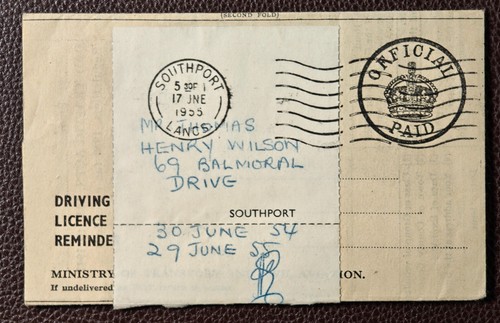 (SECOND FOLD)
SOUTHPORT
17 JNE
1955
LANCS.
OFFICIAL
PAID
MR. THOMAS
HENRY WILSON
69 BALMORAL
DRIVE
SOUTHPORT
DRIVING
LICENCE
REMINDE
30 JUNE 54
29 JUNE 55
MINISTRY ION.
If undelivered